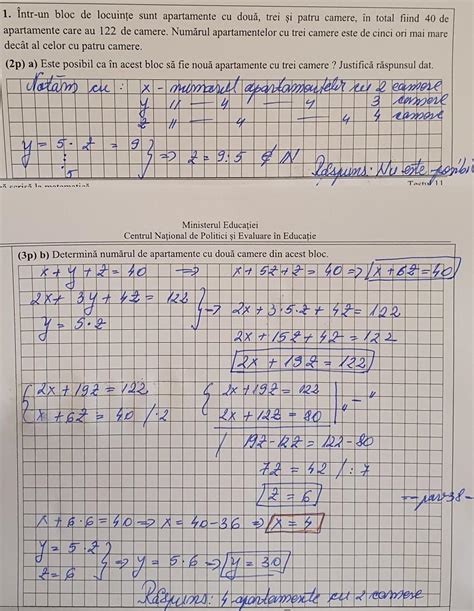 1. Într-un bloc de locuințe sunt apartamente cu două, trei și patru camere, în total fiind 40 de
apartamente care au 122 de camere. Numărul apartamentelor cu trei camere este de cinci ori mai mare
decât al celor cu patru camere.
(2p) a) Este posibil ca în acest bloc să fie nouă apartamente cu trei camere ? Justifică răspunsul dat.
Notăm cu : x - numărul apartamentelor cu 2 camere
y 〃 — 〃 — 〃 3 camere
z 〃 — 〃 — 〃 4 camere
y = 5 · z = 9
⋮
5
} => z = 9:5 ∉ IN
Răspuns: Nu este posibil
ă scrisă la matematică
Testul 11
Ministerul Educației
Centrul Național de Politici și Evaluare în Educație
(3p) b) Determină numărul de apartamente cu două camere din acest bloc.
x + y + z = 40 => x + 5z + z = 40 => x + 6z = 40
2x + 3y + 4z = 122
y = 5 · z
} => 2x + 3·5·z + 4z = 122
2x + 15z + 4z = 122
2x + 19z = 122
{ 2x + 19z = 122
x + 6z = 40 /·2
{ 2x + 19z = 122
2x + 12z = 80
„ — ”
/ 19z - 12z = 122 - 80
7z = 42 / : 7
z = 6
x + 6·6 = 40 => x = 40 - 36 => x = 4
y = 5 · z
z = 6
} => y = 5 · 6 => y = 30
Răspuns: 4 apartamente cu 2 camere